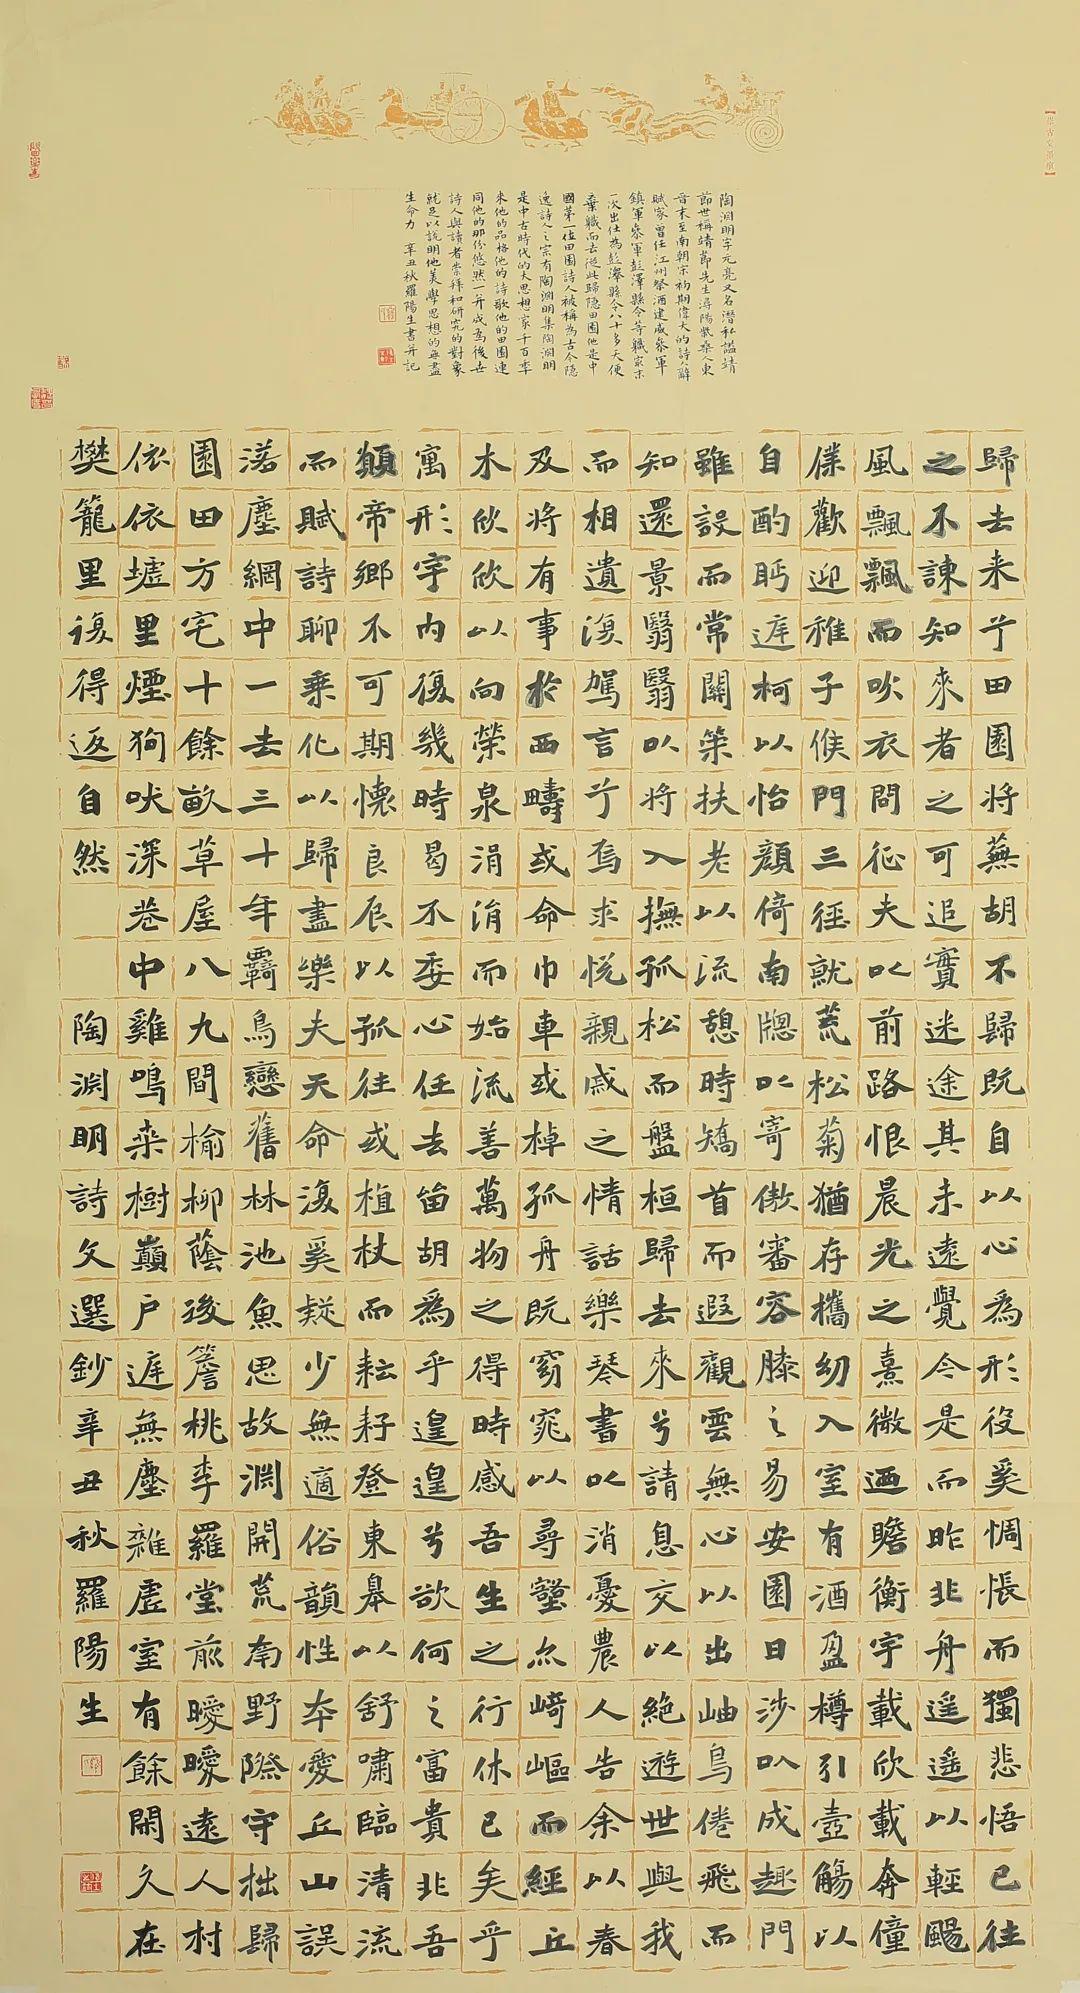 陶淵明字元亮又名潛私謚靖
節世稱靖節先生潯陽紫桑人東
晉末至南朝宋初期偉大的詩人辭
賦家曾任江州祭酒建威參軍
鎮軍參軍彭澤縣令等職家末
一次出仕為彭澤縣令八十多天便
棄職而去從此歸隐田園他是中
國第一位田園詩人被稱為古今隱
逸詩人之宗有陶淵明集陶淵明
是中古時代的大思想家千百年
來他的品格他的詩歌他的田園連
同他的那份悠然一并成為後世
詩人與讀者崇拜和研究的對象
就足以說明他美學思想的無盡
生命力 辛丑秋羅陽生書并記
歸去来兮田園將蕪胡不歸既自以心為形役奚惆悵而獨悲悟已往
之不諫知來者之可追實迷途其未遠覺今是而昨非舟遥遥以輕颺
風飄飄而吹衣問征夫以前路恨晨光之熹微迺瞻衡宇載欣載奔僮
僕歡迎稚子候門三徑就荒松菊猶存攜幼入室有酒盈樽引壺觴以
自酌眄庭柯以怡顏倚南牎以寄傲審容膝之易安園日涉以成趣門
雖設而常關策扶老以流憩時矯首而遐觀雲無心以出岫鳥倦飛而
知還景翳翳以將入撫孤松而盤桓歸去來兮請息交以絕遊世與我
而相遺復駕言兮焉求悅親戚之情話樂琴書以消憂農人告余以春
及將有事於西疇或命巾車或棹孤舟既窈窕以尋壑亦崎嶇而經丘
木欣欣以向榮泉涓涓而始流善萬物之得時感吾生之行休已矣乎
寓形宇內復幾時曷不委心任去留胡為乎遑遑兮欲何之富貴非吾
願帝鄉不可期懷良辰以孤往或植杖而耘耔登東皋以舒嘯臨清流
而賦詩聊乘化以歸盡樂夫天命復奚疑少無適俗韻性本愛丘山誤
落塵網中一去三十年羈鳥戀舊林池魚思故淵開荒南野際守拙歸
園田方宅十餘畝草屋八九間榆柳蔭後簷桃李羅堂前曖曖遠人村
依依墟里煙狗吠深巷中雞鳴桑樹巔戶庭無塵雜虛室有餘閑久在
樊籠里復得返自然 陶淵明詩文選鈔辛丑秋羅陽生